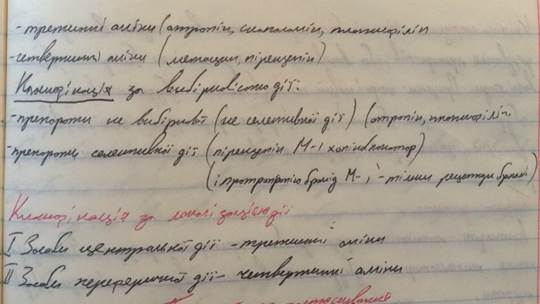 -третинні аміни (атропін, скополамін, платифілін
-четвертинні аміни (метацин, піренцепін)
Класифікація за вибірковістю дії:
-препарати не вибіркової (не селективної дії) (атропін, платифілі-
-препарати селективної дії (піренцепін М-1 холіноблокатор)
(іпротропію бромід М- , - тільки рецептори бронхі)
Класифікація за локалізацією дії
I Засоби центральної дії - третинні аміни
II Засоби переферичної дії - четвертинні аміни